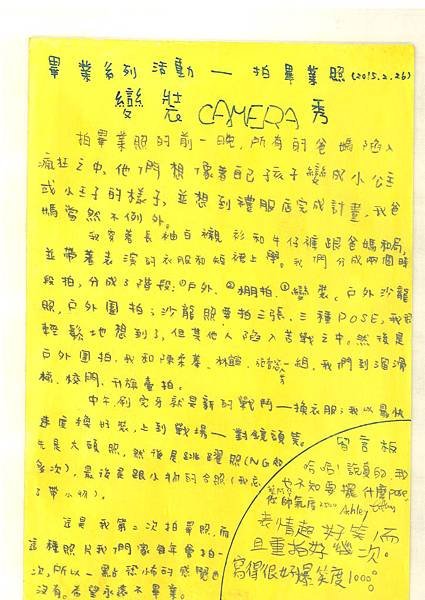 畢業系列活動 — 拍畢業照 (2015.2.26)
變裝 CAMERA 秀
拍畢業照的前一晚，所有的爸媽陷入
瘋狂之中，他們想像著自己孩子變成小公主
或小王子的樣子，並想到禮服店完成計畫，我爸
媽當然不例外。
我穿著長袖白襯衫和牛仔褲跟爸媽和局，
並帶著表演的衣服和短裙上學。我們分成兩個時
段拍，分成3階段：①戶外 ②棚拍 ③變裝，戶外沙龍
照，戶外團拍；沙龍照要拍三張，三種POSE，我很
輕鬆地想到了，但其他人陷入苦戰之中。然後是
戶外團拍，我和陳柔蓁、林 一組，我們到溜滑
梯、校門、升旗臺拍。
中午刷完牙就是新的戰鬥—換衣服；我以最快
速度換好裝，上到戰場—對鏡頭笑。
先是大頭照，然後是跳躍照(NG好
多次)，最後是跟小物的合照(我忘
了帶小物)。
這是我第二次拍畢照，而
這種照片我們家每年會拍一
次，所以一點恐怖的感覺也
沒有。希望永遠不畢業。
留言板
哈哈！說真的，我
也不知要擺什麼pose，
帥氣度1000 Ashley
表情超好笑，而
且重拍好幾次。
寫得很好爆笑度1000。